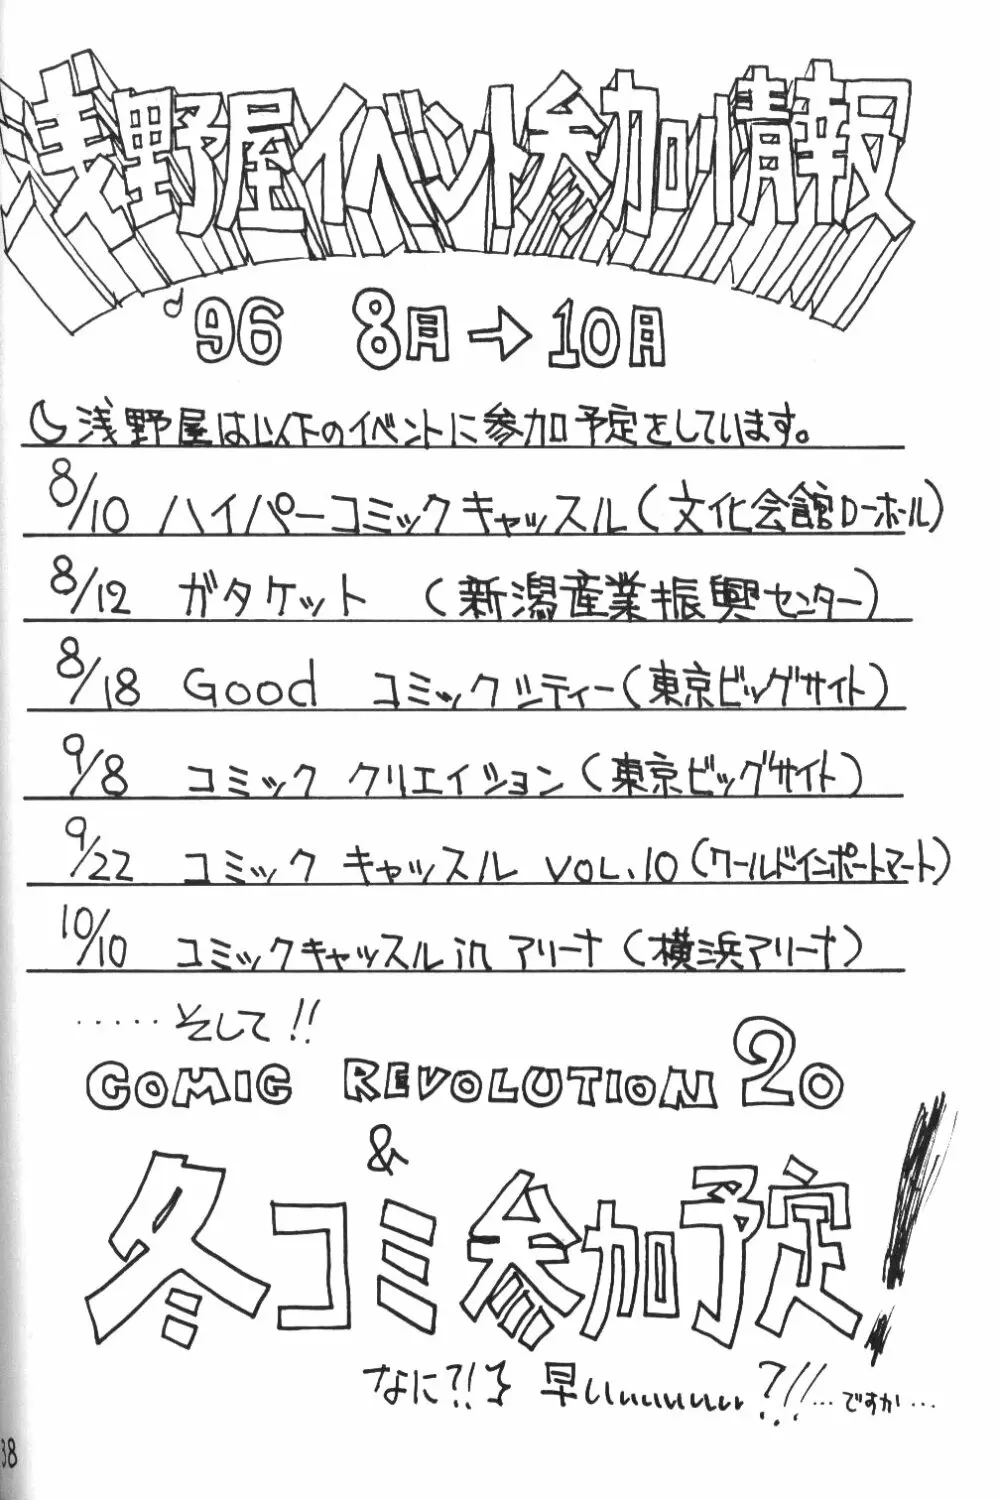 浅野屋イベント参加情報
'96 8月→10月
浅野屋は以下のイベントに参加予定をしています。
8/10 ハイパーコミックキャッスル(文化会館Dーホール)
8/12 ガタケット (新潟産業振興センター)
8/18 Good コミックシティー(東京ビッグサイト)
9/8 コミック クリエイション(東京ビッグサイト)
9/22 コミック キャッスル VOL.10(ワールドインポートマート)
10/10 コミックキャッスル in アリーナ(横浜アリーナ)
・・・・・そして!!
COMIC REVOLUTION 20
&
冬コミ参加予定!
なに?!! 早いぃぃぃぃぃぃ?!!…ですか…
38